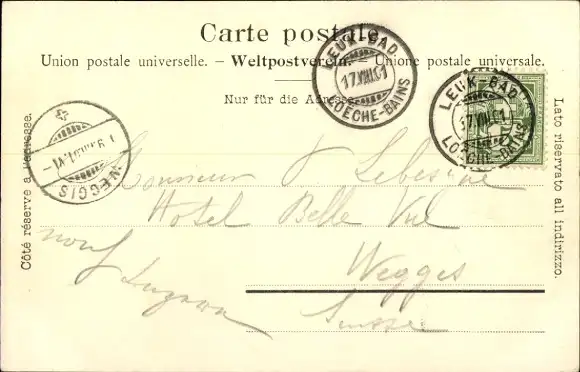 Carte postale.
Union postale universelle. – Weltpostverein. – Unione postale universale.
Nur für die Adresse.
Côté réservé à l'adresse.
Lato riservato all indirizzo.
LEUK-BAD.
17.VIII.01
LOÈCHE-BAINS
LEUK-BAD.
17.VIII.01
LOÈCHE-BAINS
WEGGIS
Monsieur
Hotel Belle Vue
Wegges
Suisse